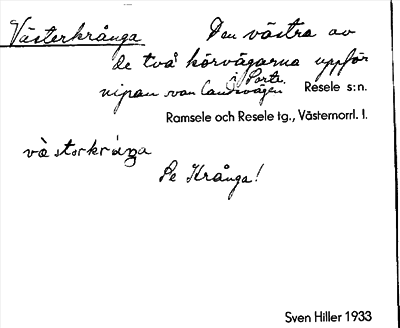 Västerkrånga Den västra av
de två körvägarna uppför
i Porte
nipan van landsvägen Resele s:n.
Ramsele och Resele tg., Västernorrl. l.
västərkråŋa
Se Krånga!
Sven Hiller 1933